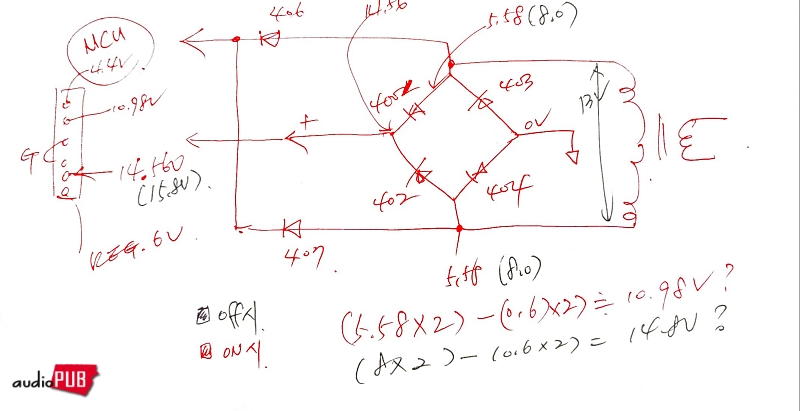 406
14.56
5.58 (8.0)
MCU
4.4V
10.98V
G
14.560
(15.8V).
REG. 6V
+
403
0V
13V
402
404
407
5.58 (8.0)
off시
ON시
(5.58×2) - (0.6)×2) ≒ 10.98V?
(8×2) - (0.6×2) = 14.8V?
audioPUB